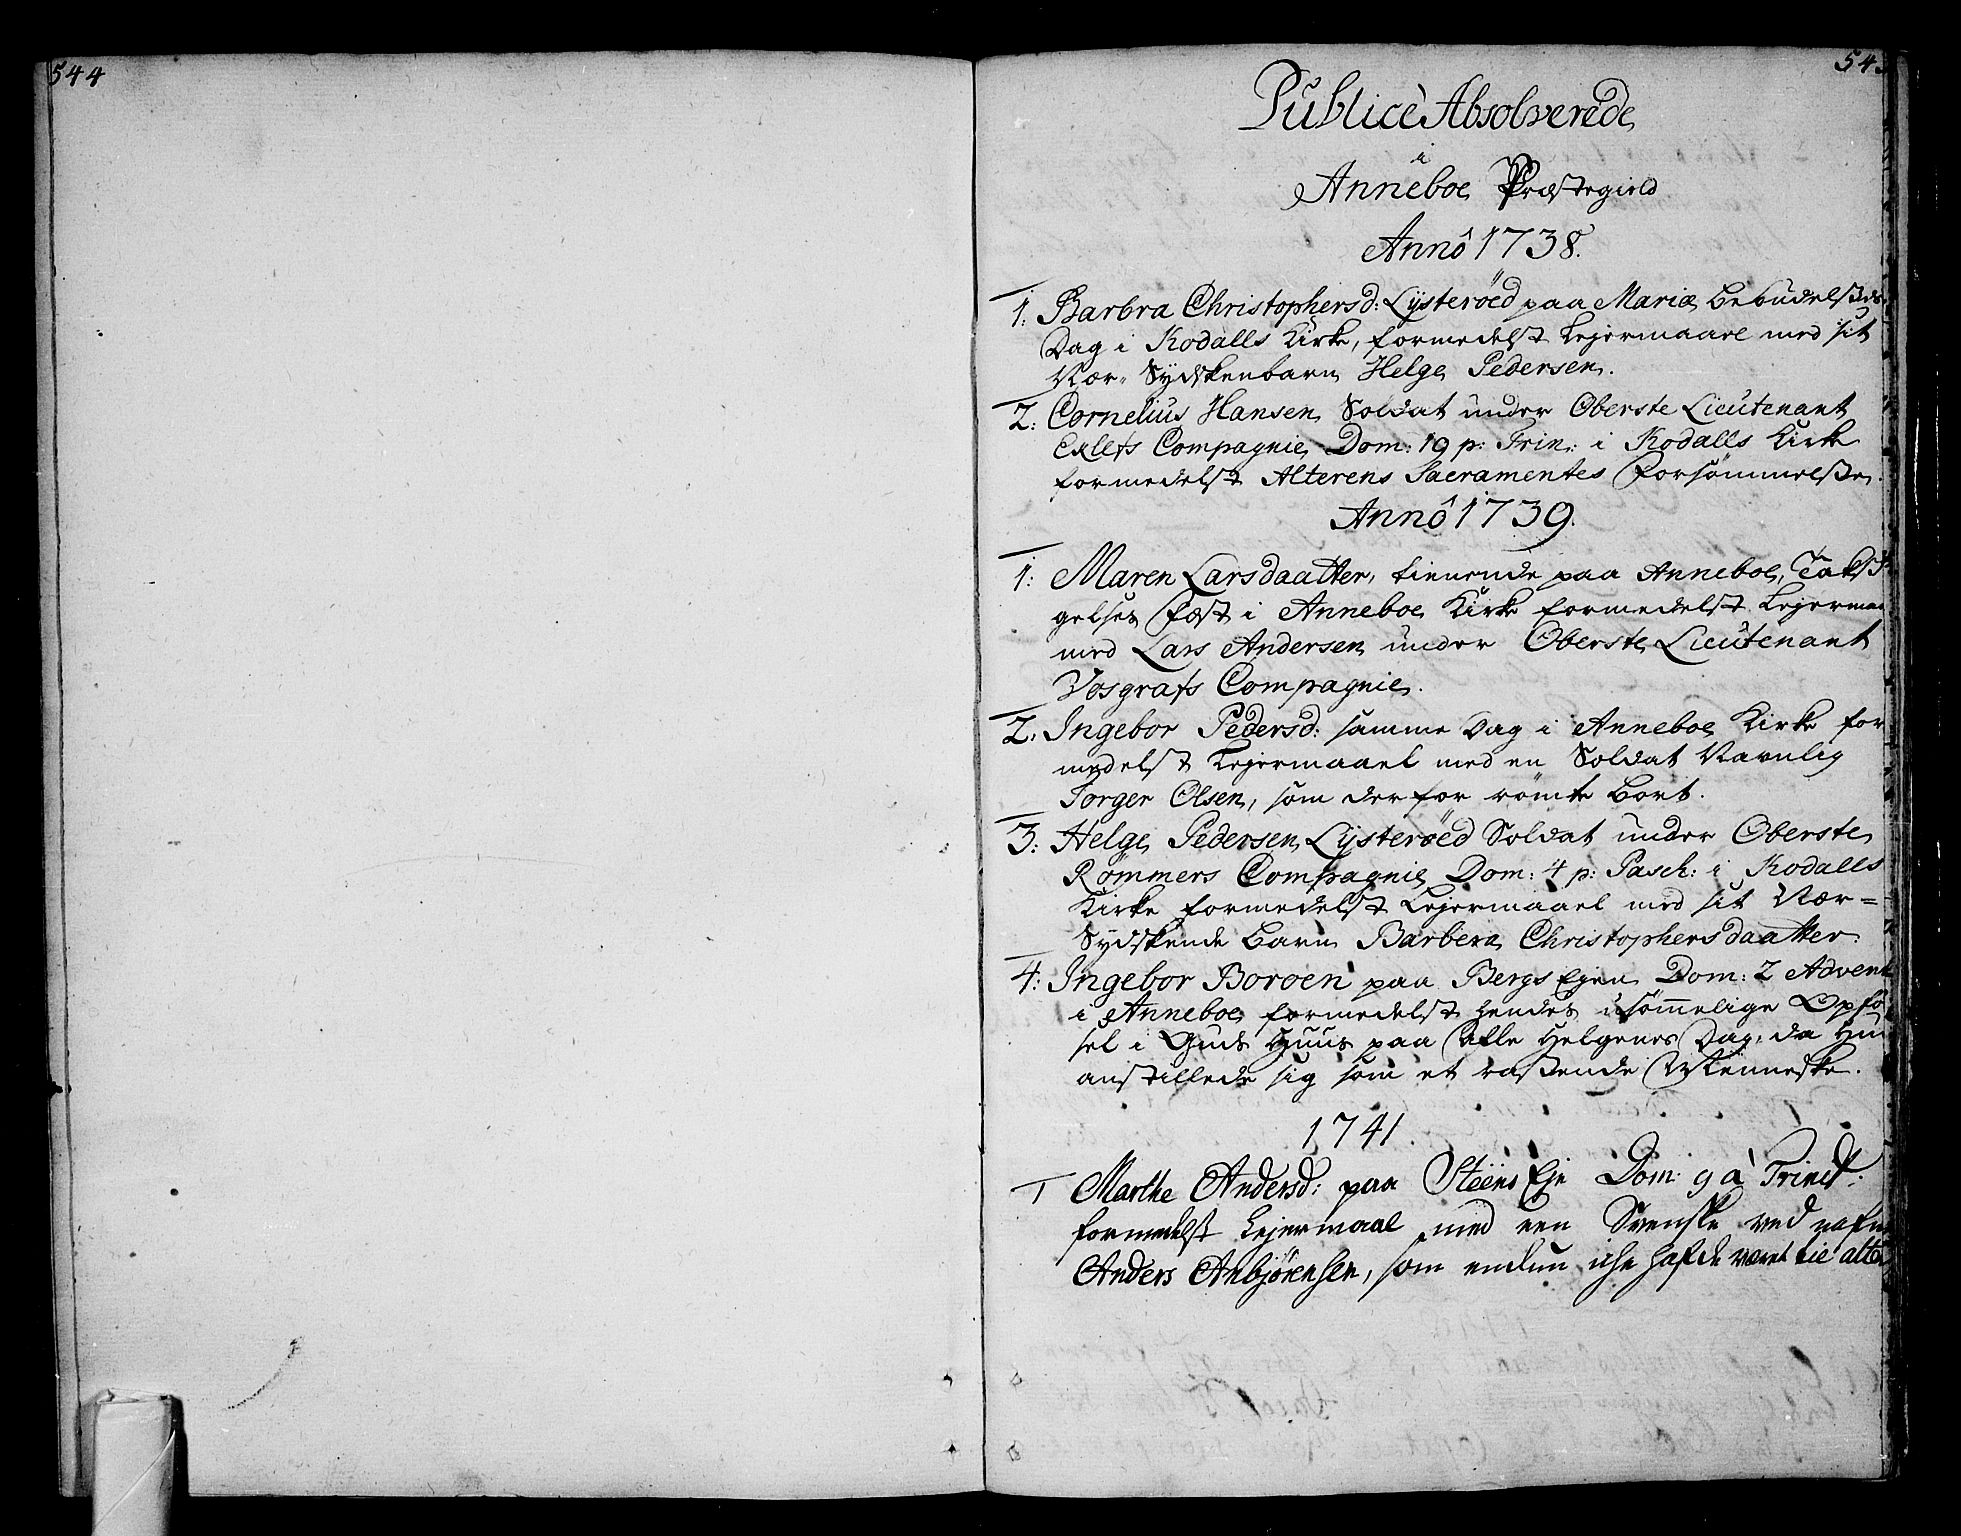 544
54
Publicè Absolverede
i
Anneboe Præstegield
Annô 1738.
1. Barbra Christophersd: Lÿsteröed paa Mariæ Bebudelses
Dag i Kodalls Kirke, formedelst Lejermaal med sit
Nær-Sÿdskenbarn Helge Pedersen.
2. Cornelius Hansen Soldat under Oberste Lieutenant
Exlefs Compagnie Dom: 19 p: Trin: i Kodalls Kirke
formedelst Alterens Sacramentes Forsømmelse.
Annô 1739.
1: Maren Larsdaatter, tienende paa Anneboe, Taksi-
gelses Fæst i Anneboe Kirke formedelst Lejermaal
med Lars Andersen under Oberste Lieutenant
Vosgrafs Compagnie.
2. Ingebor Pedersd: samme Dag i Anneboe Kirke for
medelst Lejermaal med en Soldat Navnlig
Torger Olsen, som derfor römte bort.
3. Helge Pedersen Lÿsteröed Soldat under Oberste
Rømmers Compagnie Dom: 4 p: Pasch: i Kodalls
Kirke formedelst Lejermaal med sit Nær-
Sÿdskende barn Barbera Christophersdaatter.
4: Ingebor Boroen paa Bergs Ejen Dom: 2 Advent
i Anneboe formedelst hendes usømmelige Opfø
sel i Guds Huus paa Alle Helgenes Dag, da Hun
anstillede sig som et rasende Menneske.
1741.
1 Marthe Andersd: paa Steens Eje Dom: 9 à Trinit:
formedelst Lejermaal med een Svenske ved nafn
Anders Anbjørensen, som endnu iche hafde været til alte